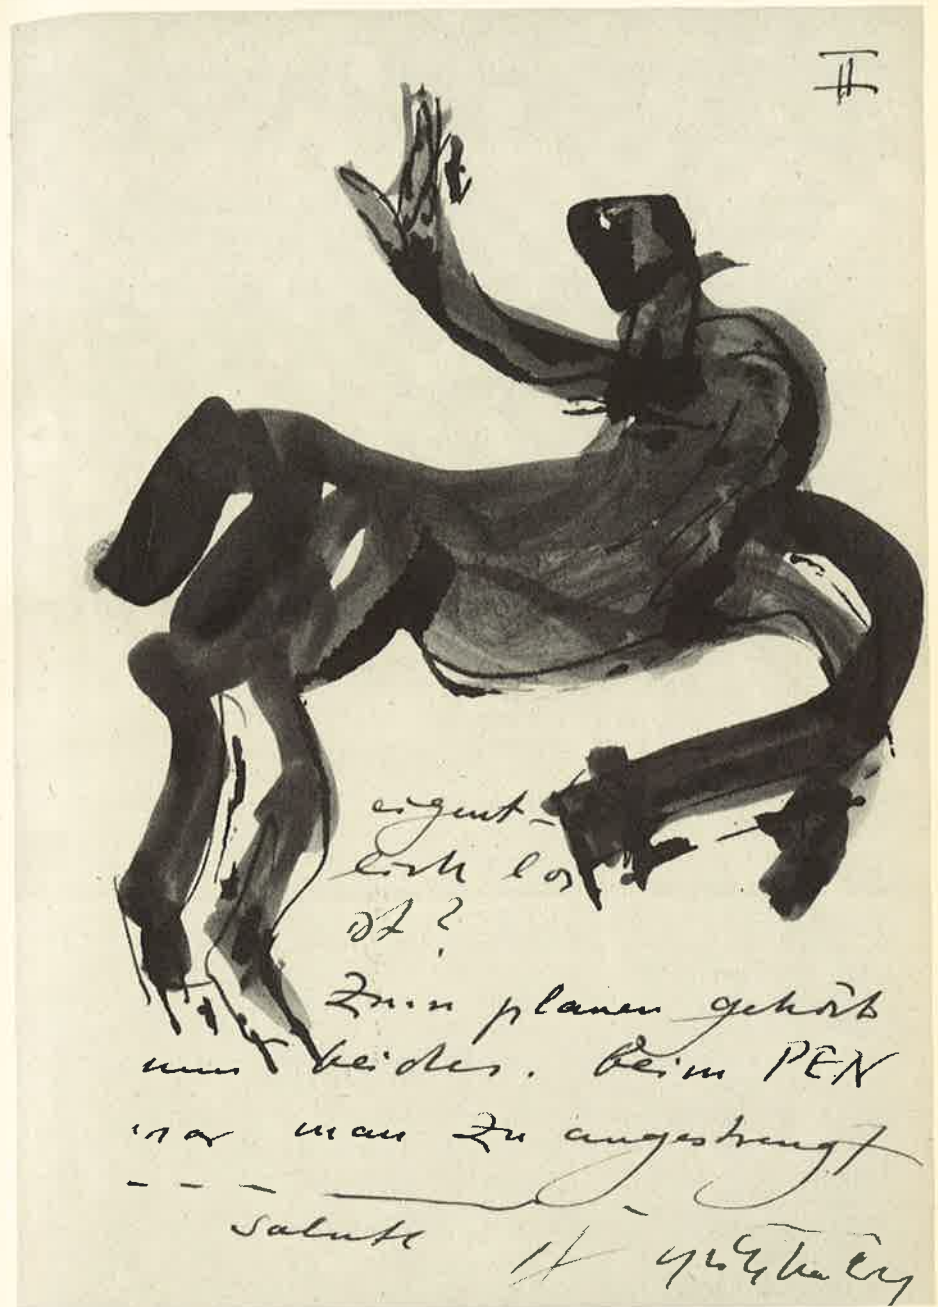 II
eigent-
lich los
ist?
Zum planen gehört
nun beides. beim PEN
war man zu angestrengt
---
salute